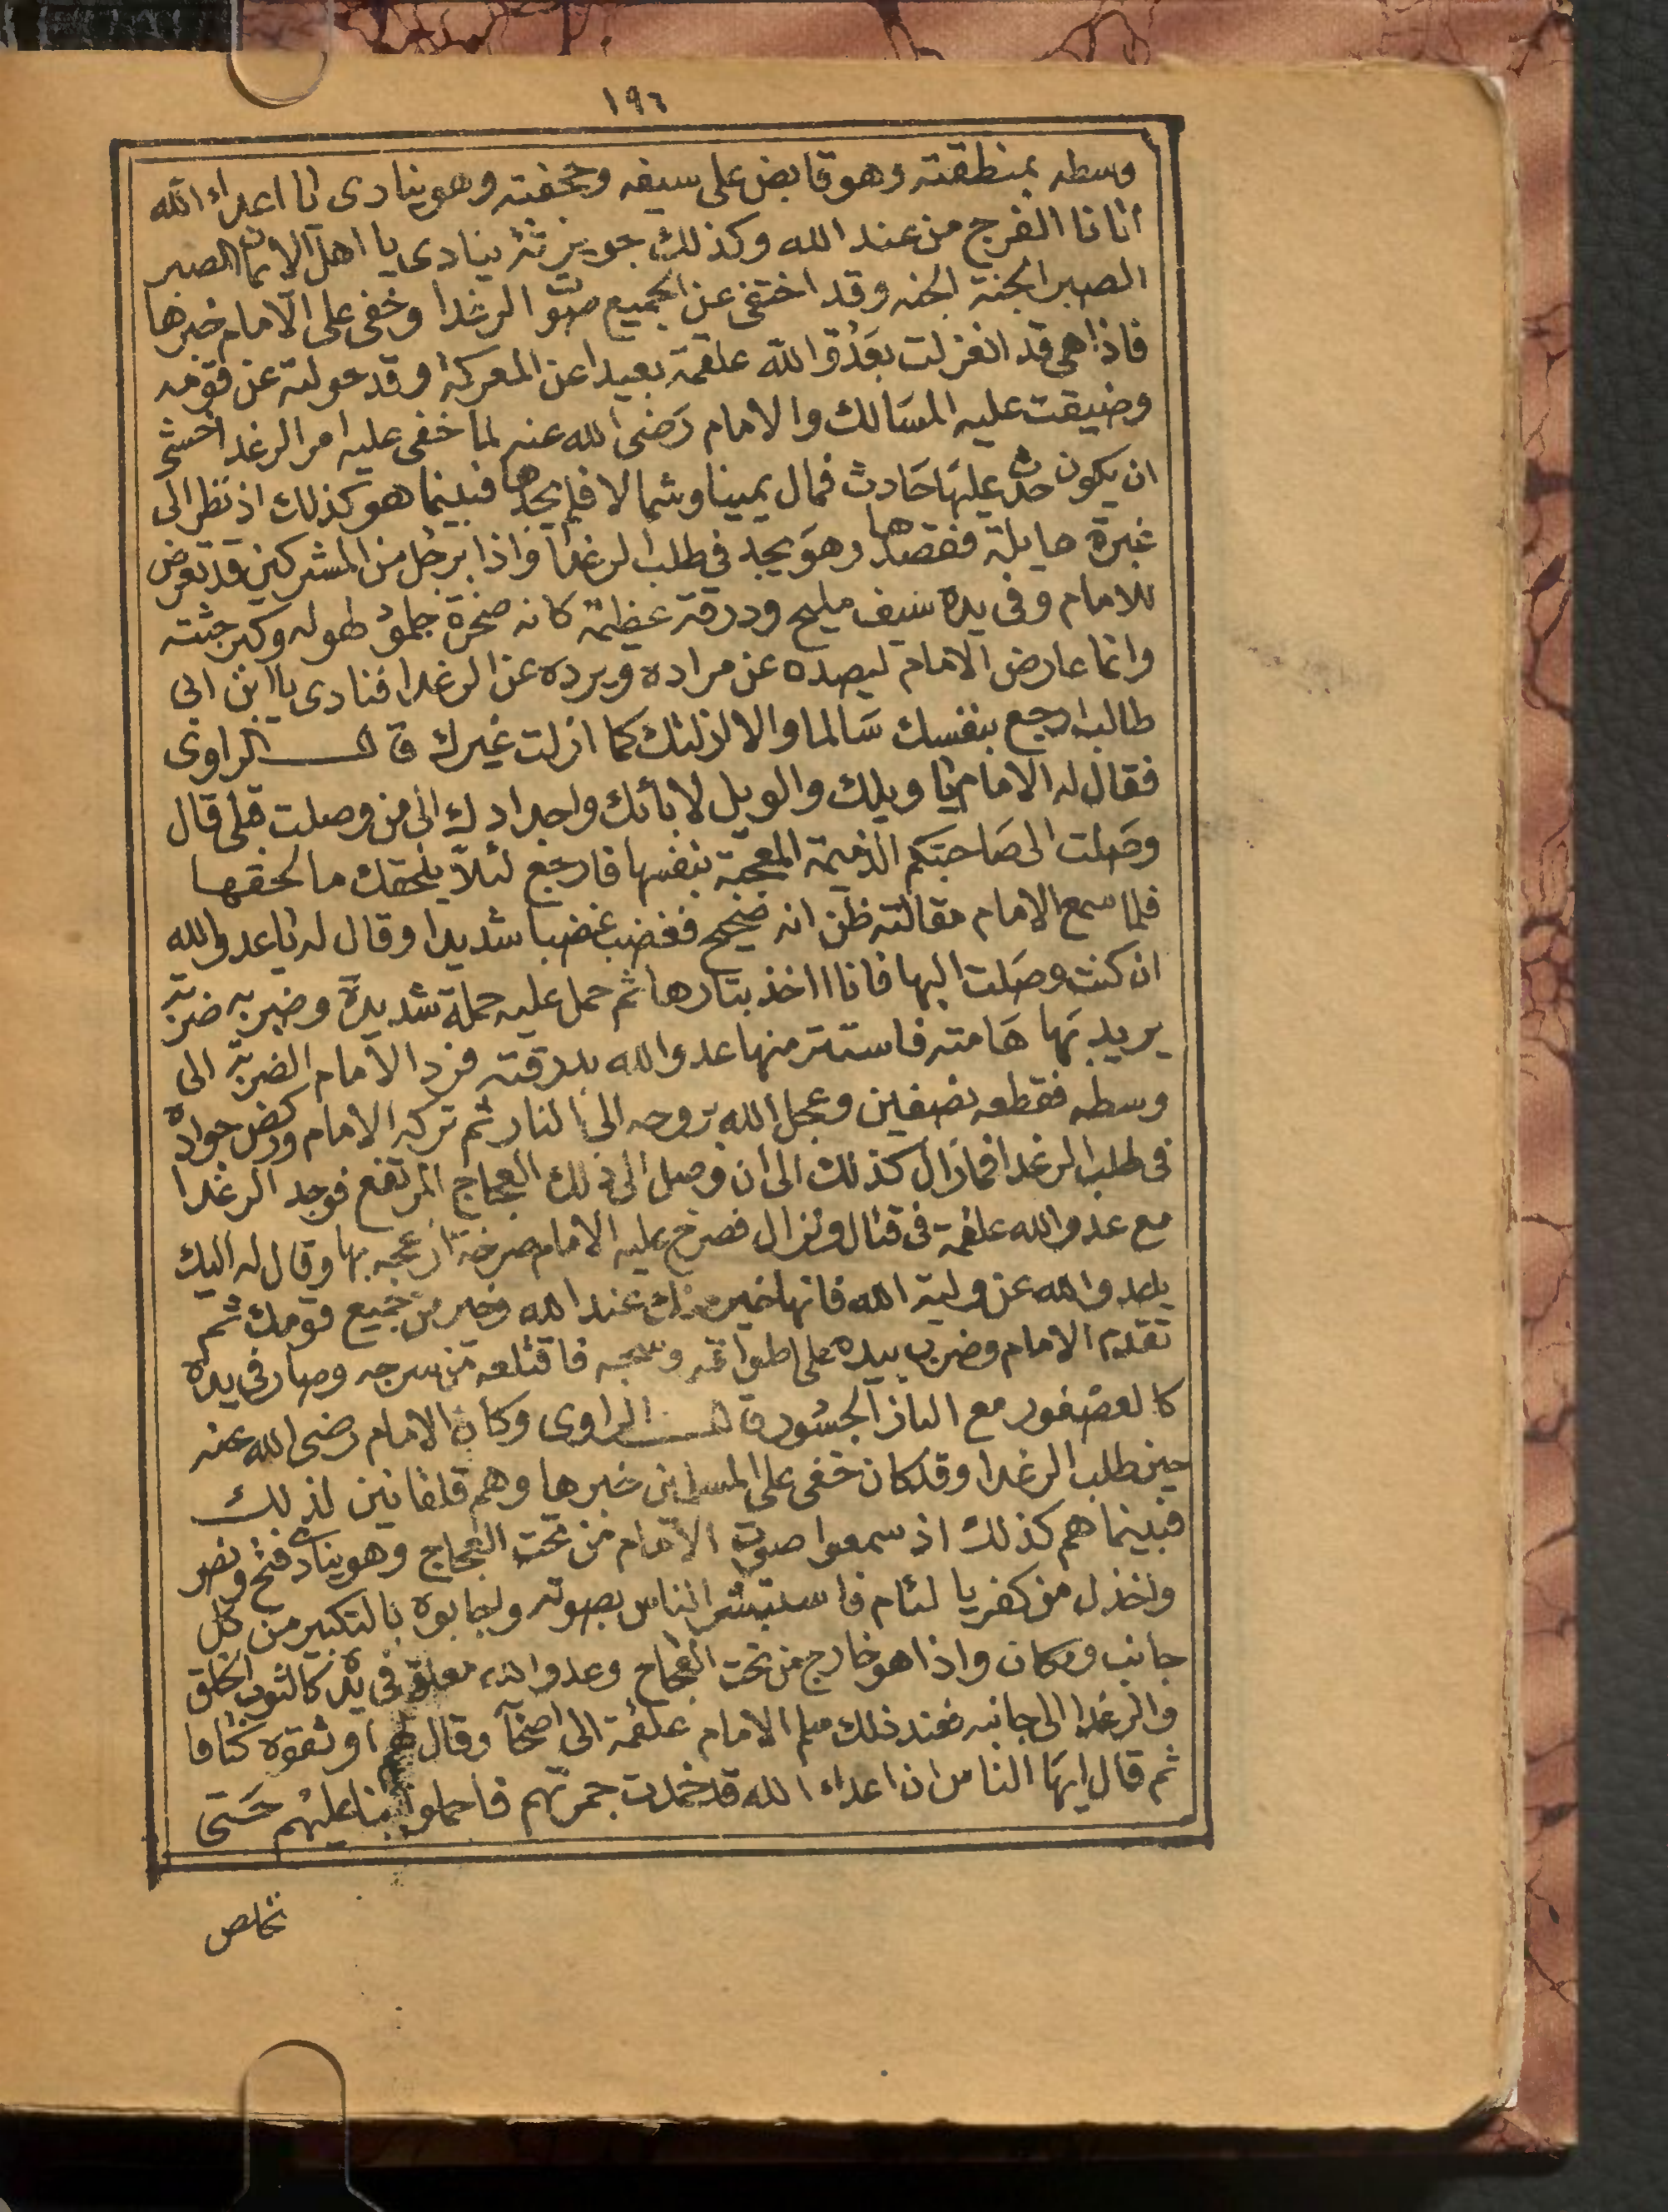 ١٩٦
وسطه بمنطقته وهو قابض على سيفه وحجفته وهو ينادى يا اعداء الله
اتانا الفرج من عند الله وكذلك جويرثة ينادى يا اهل الايمان الصبر
الصبر الجنة الجنه وقد اختفى عن الجميع صوت الرغدا وخفى على الامام خبرها
فاذا هى قد انفزلت بعدو الله علقمة بعيدا عن المعركة وقد حولته عن قومه
وضيقت عليه المسالك والامام رضى الله عنه لما خفى عليه امر الرغدا خشى
ان يكون حدث عليها حادث فمال يمينا وشمالا فلم يجدها فبينما هو كذلك اذ نظر الى
غبرة حايلة فقصدها وهو يجد فى طلب الرغدا فاذا برجل من المشركين قد تعرض
للامام وفى يده سيف مليح ودرقة عظيمة كانه صخرة جلمود طوله وكبر جثته
وانما عارض الامام ليصده عن مراده ويرده عن الرغدا فنادى يا ابن ابى
طالب ارجع بنفسك سالما والا انزلتك كما انزلت غيرك قال الراوى
فقال له الامام يا ويلك والويل لابائك واجدادك الى من وصلت قبلى قال
وصلت الى صاحبتكم الذميمة المعجبة بنفسها فارجع لئلا يلحقك ما لحقها
فلما سمع الامام مقالته ظن انه صحيح فغضب غضبا شديدا وقال له يا عدو الله
ان كنت وصلت اليها فانا اخذ بتارها ثم حمل عليه حملة شديدة وضربه ضربة
يريد بها هامته فاستتر منها عدو الله بدرقته فرد الامام الضربة الى
وسطه فقطعه نصفين وعجل الله بروحه الى النار ثم تركه الامام وركض جواده
فى طلب الرغدا فمازال كذلك الى ان وصل الى ذلك العجاج المرتفع فوجد الرغدا
مع عدو الله علقمة فى قتال ونزال فصرخ عليه الامام صرخة ازعجه بها وقال له اليك
يا عدو الله عن ولية الله فانها خير منك عند الله وخير من جميع قومك ثم
تقدم الامام وضرب بيده على اطواقه وسحبه فاقتلعه من سرجه وصار فى يده
كالعصفور مع الباز الجسور قال الراوى وكان الامام رضى الله عنه
حين طلب الرغدا وقد كان خفى على المسلمين خبرها وهم قلقانين لذلك
فبينما هم كذلك اذ سمعوا صوت الامام من تحت العجاج وهو ينادى فتح ونصر
واخذل من كفر يا لئام فاستبشر الناس بصوته واجابوه بالتكبير من كل
جانب ومكان واذا هو خارج من تحت العجاج وعدو الله معلق فى يده كالثوب الخلق
والرغدا الى جانبه فعند ذلك سلم الامام علقمة الى اصحابه وقال لهم اوثقوه كتافا
ثم قال ايها الناس ان اعداء الله قد خمدت جمرتهم فاحملوا بنا عليهم حتى
نخلص